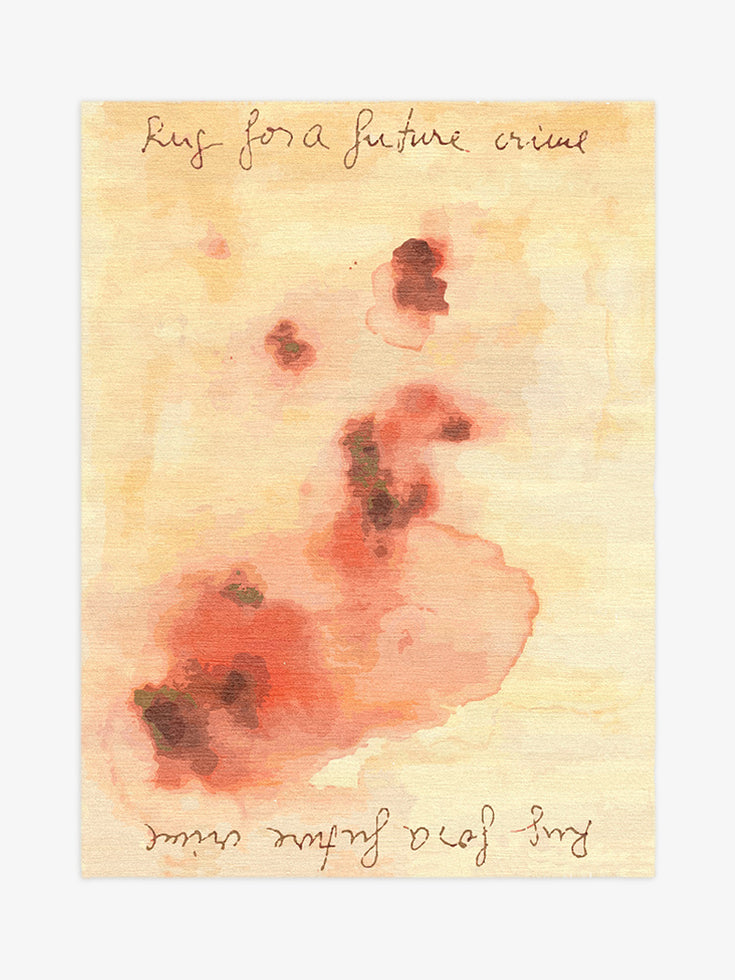 Rug for a future crime
Rug for a future crime